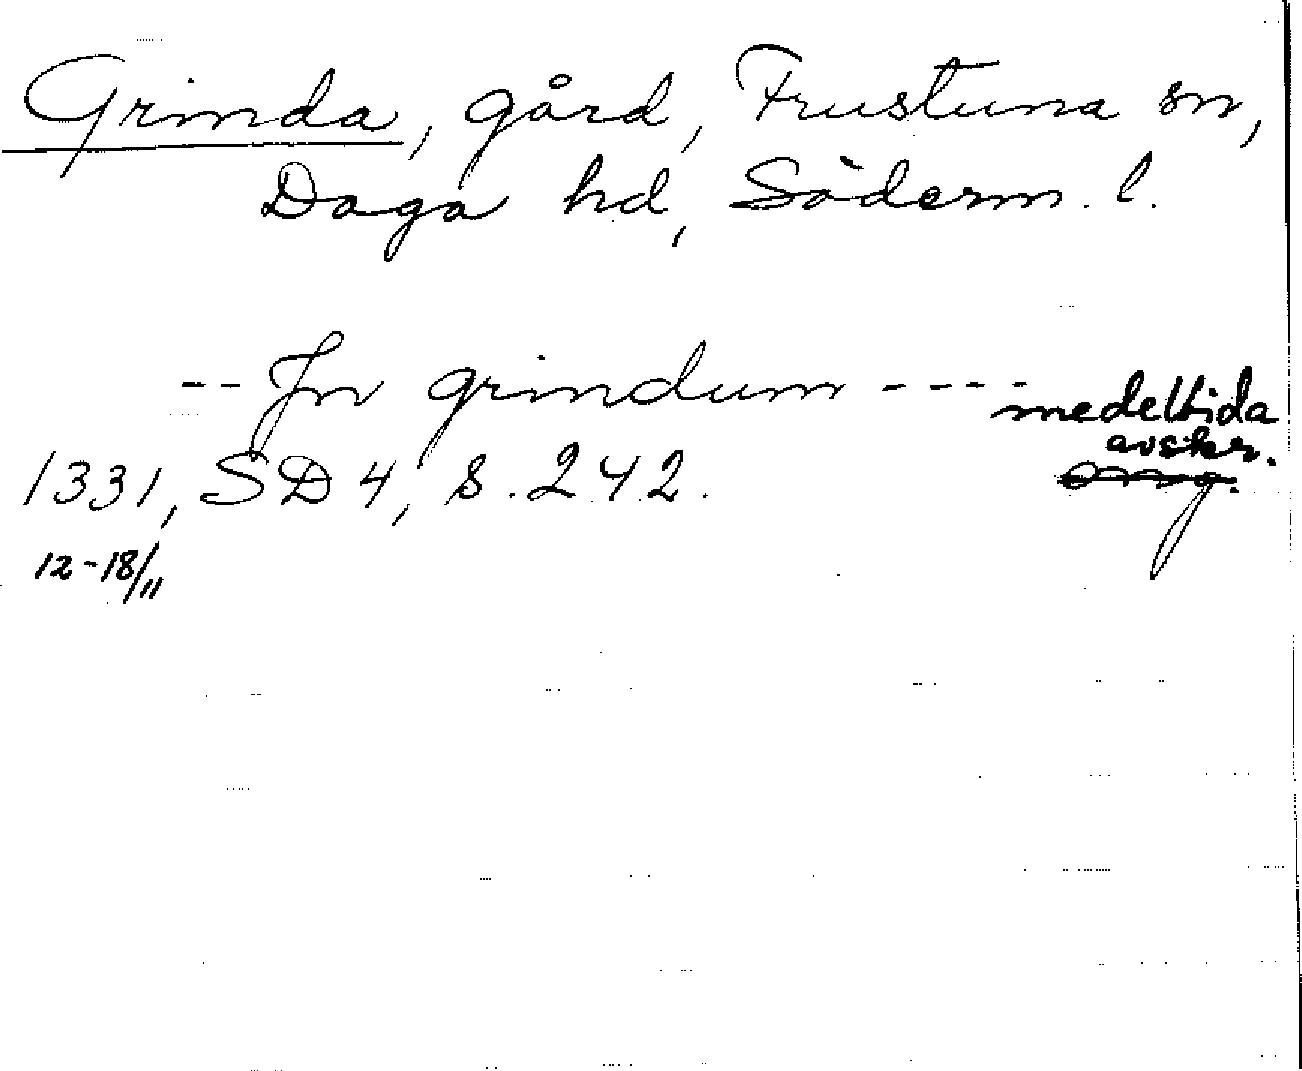 Grinda, gård, Frustuna sn,
Daga hd, Söderm. l.
-- Jn grindum ----
medeltida
avskr.
1331, SD 4, s. 242.
12-18/11